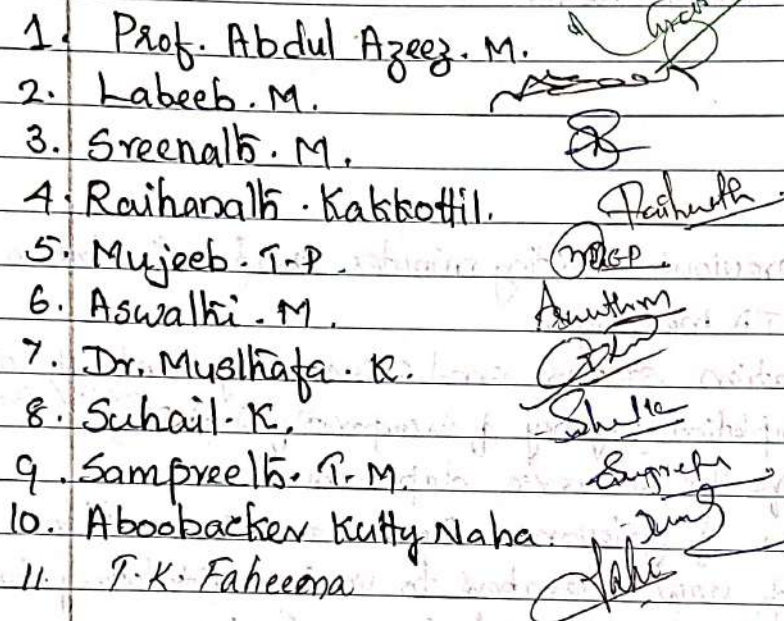 1. Prof. Abdul Azeez. M.
2. Labeeb. M.
3. Sreenath. M.
4. Raihanath. Kakkottil. Raihanath
5. Mujeeb. T.P.
6. Aswathi. M. Aswathi M
7. Dr. Musthafa. K.
8. Suhail. K.
9. Sampreeth. T.M.
10. Aboobacker Kutty Naha.
11. T.K. Faheema